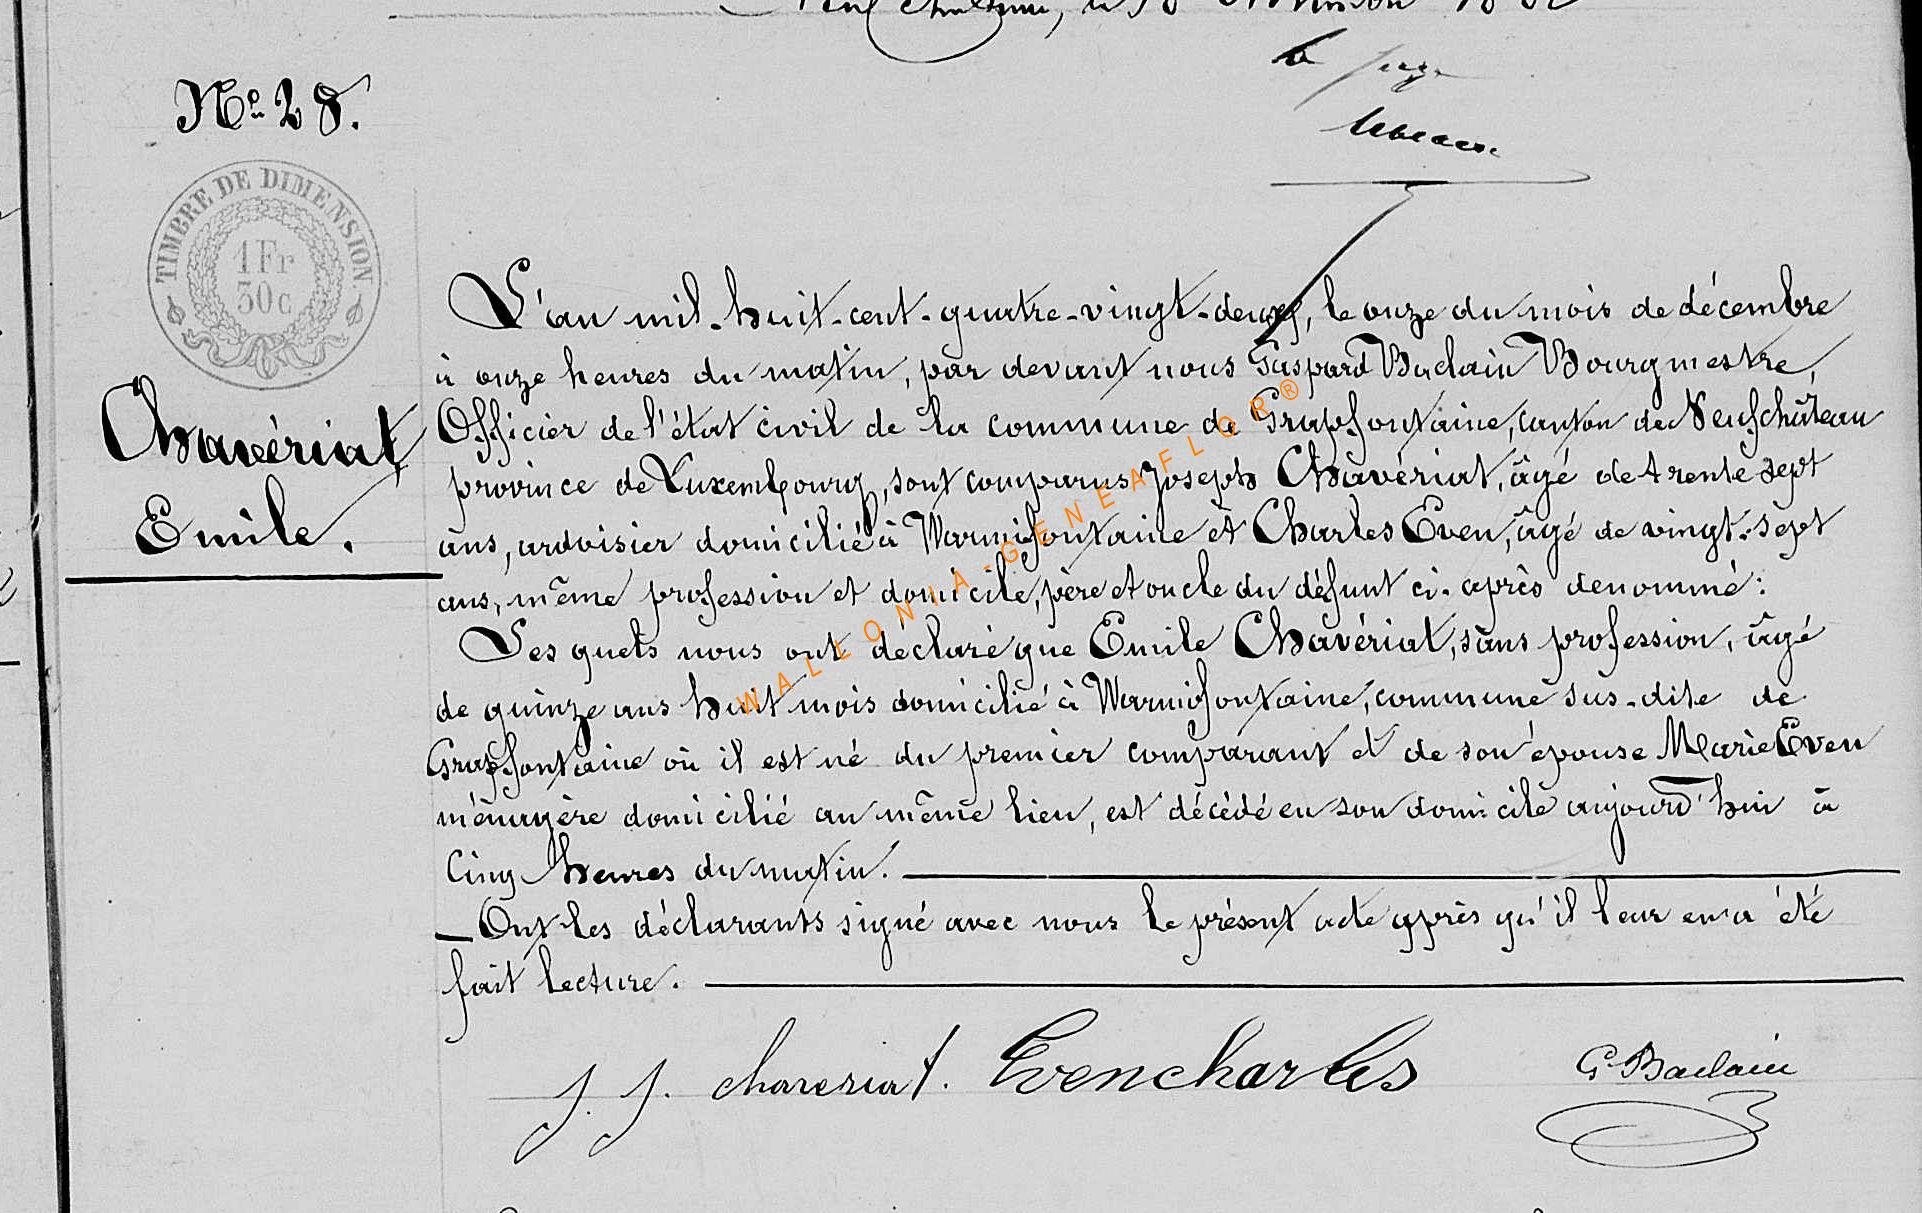 le juge
N° 28.
TIMBRE DE DIMENSION
1 Fr
50c
Chavériat
Emile.
L'an mil-huit-cent-quatre-vingt-deux, le onze du mois de décembre
à onze heures du matin, par devant nous Gaspard Baclain Bourgmestre,
Officier de l'état civil de la commune de Grapfontaine, canton de Neufchâteau
province de Luxembourg, sont comparus Joseph Chavériat, âgé de trente sept
ans, ardoisier domicilié à Warmifontaine et Charles Even, âgé de vingt-sept
ans, même profession et domicile, père et oncle du défunt ci-après denommé:
Les quels nous ont déclaré que Emile Chavériat, sans profession, âgé
de quinze ans huit mois domicilié à Warmifontaine, commune sus-dite de
Grapfontaine où il est né du premier comparant et de son épouse Marie Even
ménagère domicilié au même lieu, est décédé en son domicile aujourd'hui à
Cinq heures du matin.
Ont les déclarants signé avec nous le présent acte après qu'il leur en a été
fait lecture.
J. J. chaveriat. Evencharles G Baclain
WALLONIA-GENEAFLOR®